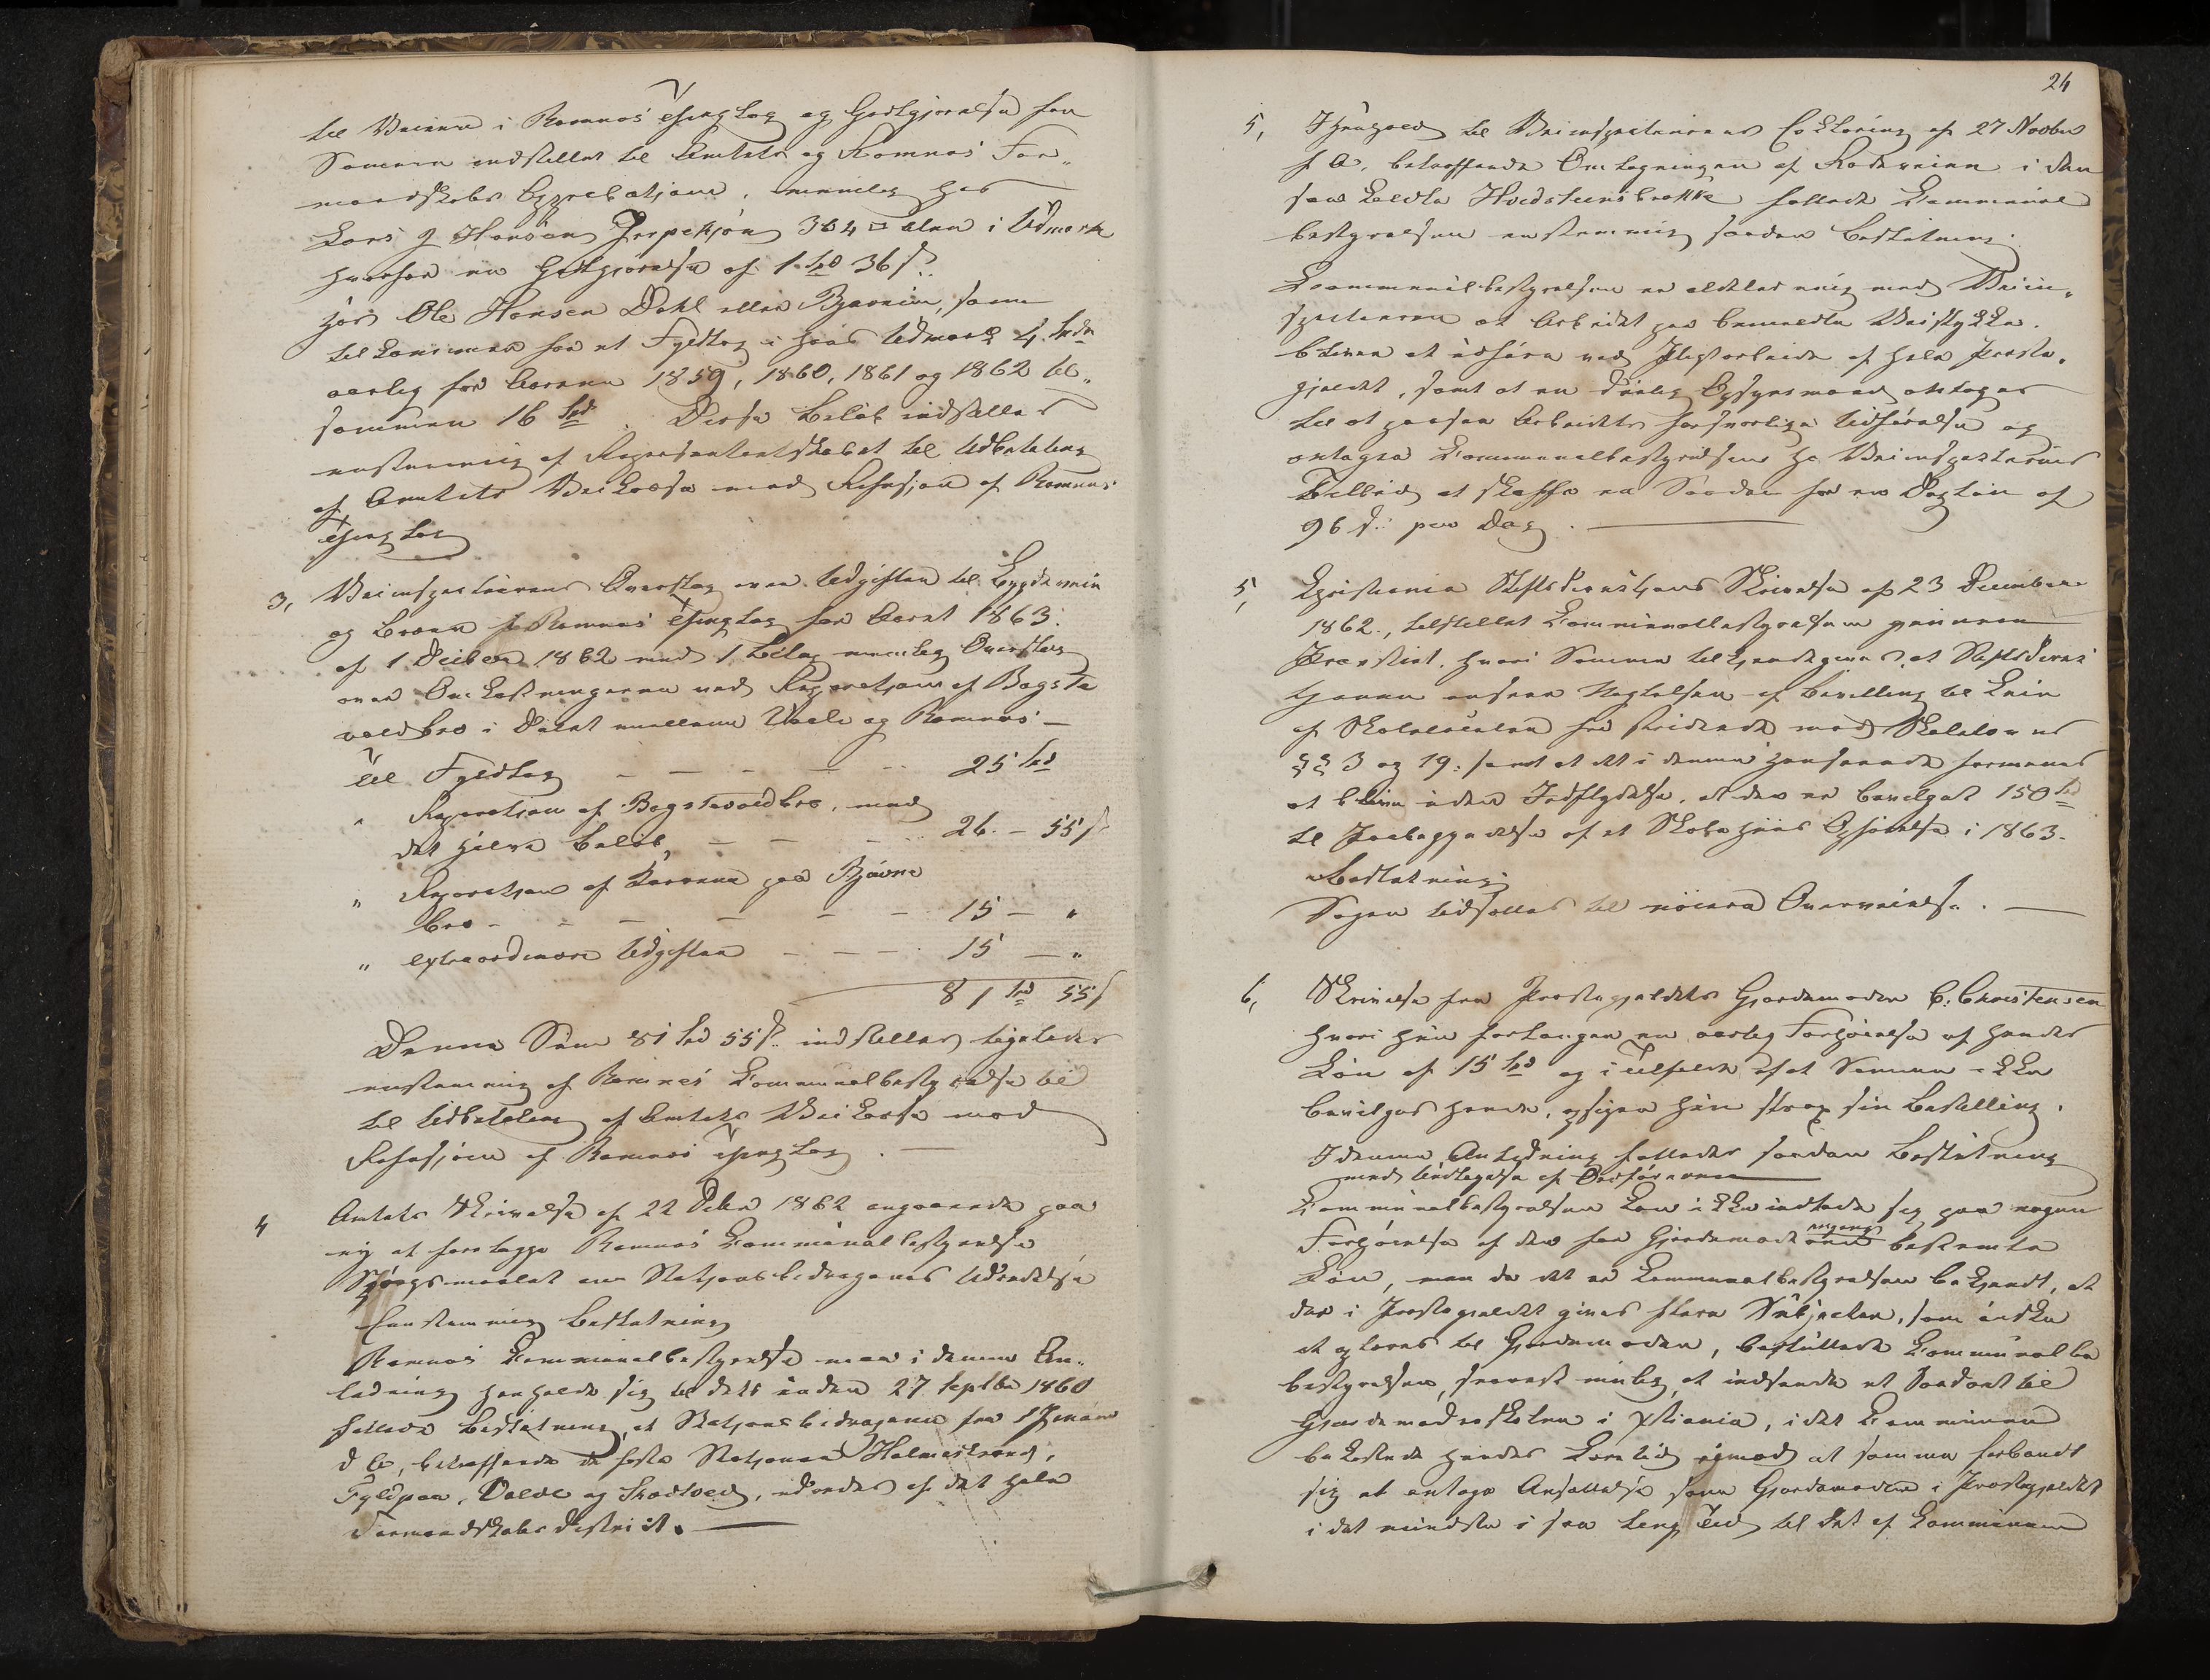 til Veiene i Ramnæs Thinglag og Godtgjørelse for
Samme indstillet til Amtets og Ramnæs For-
mandskabs Approbation, nemlig hos
Lars J Hansen Jerpekjøn 364 □ Alen i Udmark
hvorfor en Godtgjørelse af 1 Spd 36 s.
hos Ole Hansen Dahl eller Bjerreim, som
tilkommer for et Fyldtag i hans Udmark 4 Spdr
aarlig for Aarene 1859, 1860, 1861 og 1862 til-
sammen 16 Spd. Disse Beløb indstilles
enstemmig af Repræsentantskabet til Udbetaling
af Amtets Veikasse mod Refusjon af Ramnæs
Thinglag
3, Veiinspecteurens Overslag over Udgifter til Bygdeveie
og Broer i Ramnæs Thinglag for Aaret 1863.
af 1 Decber 1862 med 1 Bilag nemlig Overslag
over Omkostningerne ved Reparation af Bogste
voldbro i Delet mellem Vaale og Ramnæs —
Til Fyldtag — — — — — 25 Spd
" Reparation af Bogstevoldbro, med
det halve Beløb, — — — 26 — 55 s
" Reparation af Karrene paa Bjørne
bro — — — — — 15 — "
" extraordinære Udgifter — — — 15 — "
81 Spd 55 s
Denne Sum 81 Spd 55 s. indstilles ligeledes
enstemmig af Ramnæs Kommunalbestyrelse til
til Udbetaling af Amtets Veikasse mod
Refusjon af Ramnæs Thinglag. —
4 Amtets Skrivelse af 22 Decbr 1862 angaaende paa
ny at forelægge Ramnæs Kommunalbestyrelse
Spørgsmaalet om Stationsbidragenes Udredelse
Eenstemmig Beslutning
Ramnæs Kommunalbestyrelse maa i denne An-
ledning henholde sig til dets under 27 Septbr 1860
fattede Beslutning, at Stationsbidragene fra 1 Januar
d A, betræffende de faste Stationer Holmestrand,
Fyldpaa, Valde og Skadtved, udredes af det hele
Formandskabs District. —
24
5, Ifølge til Veiinspecteurens Erklæring af 27 Novber
f A. betræffende Omlægningen af Rodeveien i den
saa kaldte Hvidsteensbrække fattede Kommunal
bestyrelsen enstemmig saadan Beslutning:
Kommunalbestyrelsen er aldeles enig med Veiin-
specteuren at Arbeidet paa bemeldte Veistykke
bliver at udføre ved Pligtarbeide af hele Præste-
gjeldet, samt at en duelig Opsynsmand antages
til at paasee Arbeidets forsvarlige Udførelse og
antager Kommunalbestyrelsen Hr Veiinspecteurens
Tilbud at skaffe en Saadan for en Dagløn af
96 s. pro Dag. —
5, Christiania Stiftsdirections Skrivelse af 23 December
1862., tilstillet Kommunalbestyrelsen gjennem
Præsten. hvori Samme tilkjendegives, at Stiftsdirec
tionen anseer Nægtelsen af Bevilling til Leie
af Skolelocaler for stridende mod Skolelovens
§§ 3 og 19. samt at det i denne Henseende formenes
at blive uden Indflydelse, at der er bevilget 150 Spd
til Paabegyndelse af et Skolehuus Opførelse i 1863.
Beslutning:
Sagen udsættes til nøiere Overveielse. —
6, Skrivelse fra Præstegjeldets Gjordemoder C. Christensen
hvori hun forlanger en aarlig Forhøielse af hendes
Løn af 15 Spd og i Tilfælde af at Samme ikke
bevilges hende, opsiger hun strax sin Bestilling.
I denne Anledning fattedes saadan Beslutning
med Undtagelse af Ordføreren
Kommunalbestyrelsen kan ikke indlade sig paa nogen
Forhøielse af den for Gjordemoderen engang bestemte
Løn, men da det er Kommunalbestyrelsen bekjendt, at
der i Præstegjeldet gives flere Subjecter, som ønske
at oplæres til Gjordemoder, besluttede Kommunalbe
bestyrelsen, snarest mulig, at indsende et Saadant til
Gjordemoderskolen i Xstiania, idet Kommunen
bekostede hendes Læretid imod at samme forbandt
sig at antage Ansættelse som Gjordemoder i Præstegjeldet
i det mindste i saa lang Tid til det af Kommunen